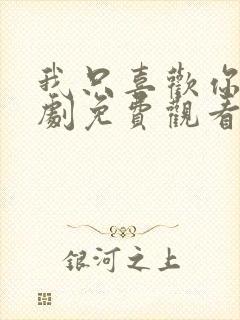 我只喜歡你
劇免費觀看
銀河之上